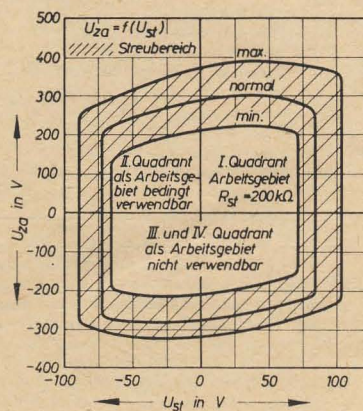 U'za = f(Ust)
Streubereich
max.
normal
min.
II. Quadrant
als Arbeitsge-
biet bedingt
verwendbar
I. Quadrant
Arbeitsgebiet
Rst = 200 kΩ
III. und IV. Quadrant
als Arbeitsgebiet
nicht verwendbar
500
400
300
200
100
0
-100
-200
-300
-400
Uza in V
-100
-50
0
50
100
Ust in V